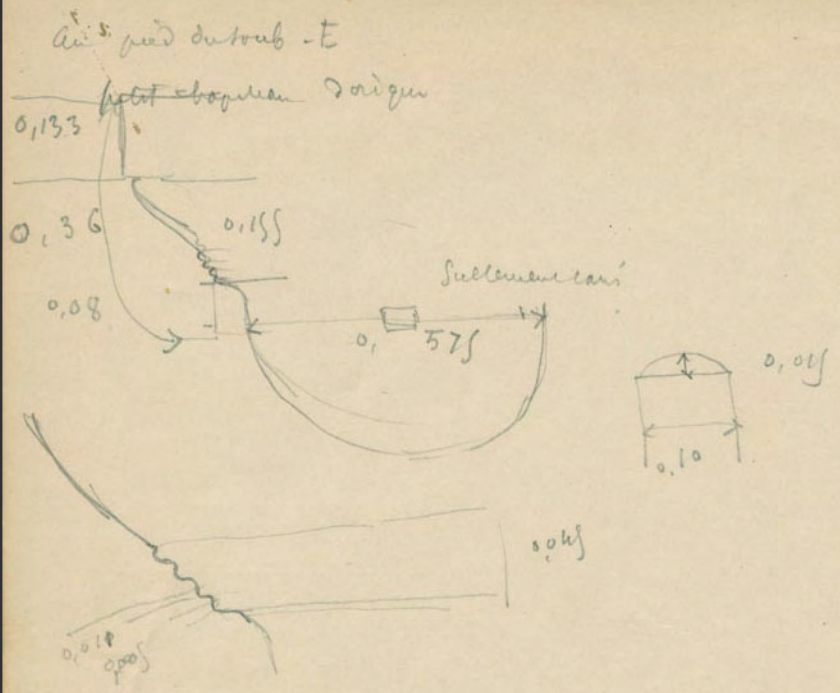 Au pied du soub - E
petit chapiteau Dorique
0,133
0,36
0,155
0,08
0, 575
0,015
0,10
0,045
0,010
0,005